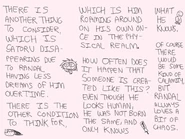 THERE IS
ANOTHER THING
TO CONSIDER.
WHICH IS
GATORU DISA-
PPEARING DUE
TO RANDAL
HAVING LESS
DREAMS OF HIM
OVERTIME.
THERE IS THE
OTHER CONDITION
TO THINK FOR.
WHICH IS HIM
ROAMING AROUND
ON HIS OWN ON-
CE IN THE PH-
YSICAL REALM.
HOW OFTEN DOES
IT HAPPEN THAT
SOMEONE IS CREA-
TED LIKE THIS?
EVEN THOUGH HE
LOOKS HUMAN,
HE WAS NOT BORN
THE SAME, AND
ONLY KNOWS
WHAT
HE
KNOWS.
OF COURSE
THERE
WOULD
BE SOME
KIND OF
CALAMITY
BUT
RANDAL
ALWAYS
LIVES A
BIT OF
CHAOS